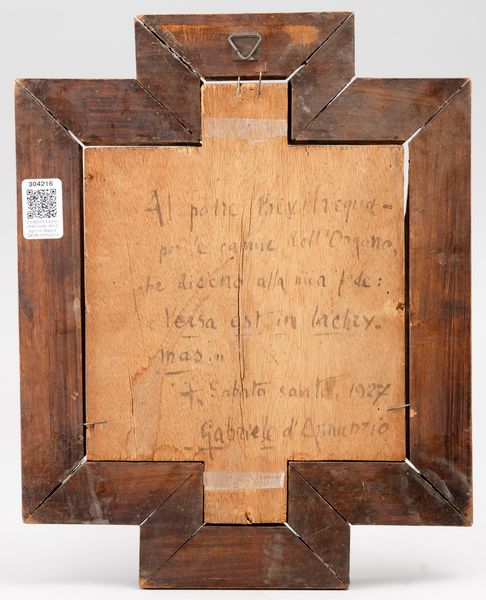 304216
Al padre Bevilacqua -
per le canne dell'Organo,
che dicono alla mia fede:
"Versa est in lachry-
mas."
+ Sabato santo, 1927
Gabriele d'Annunzio